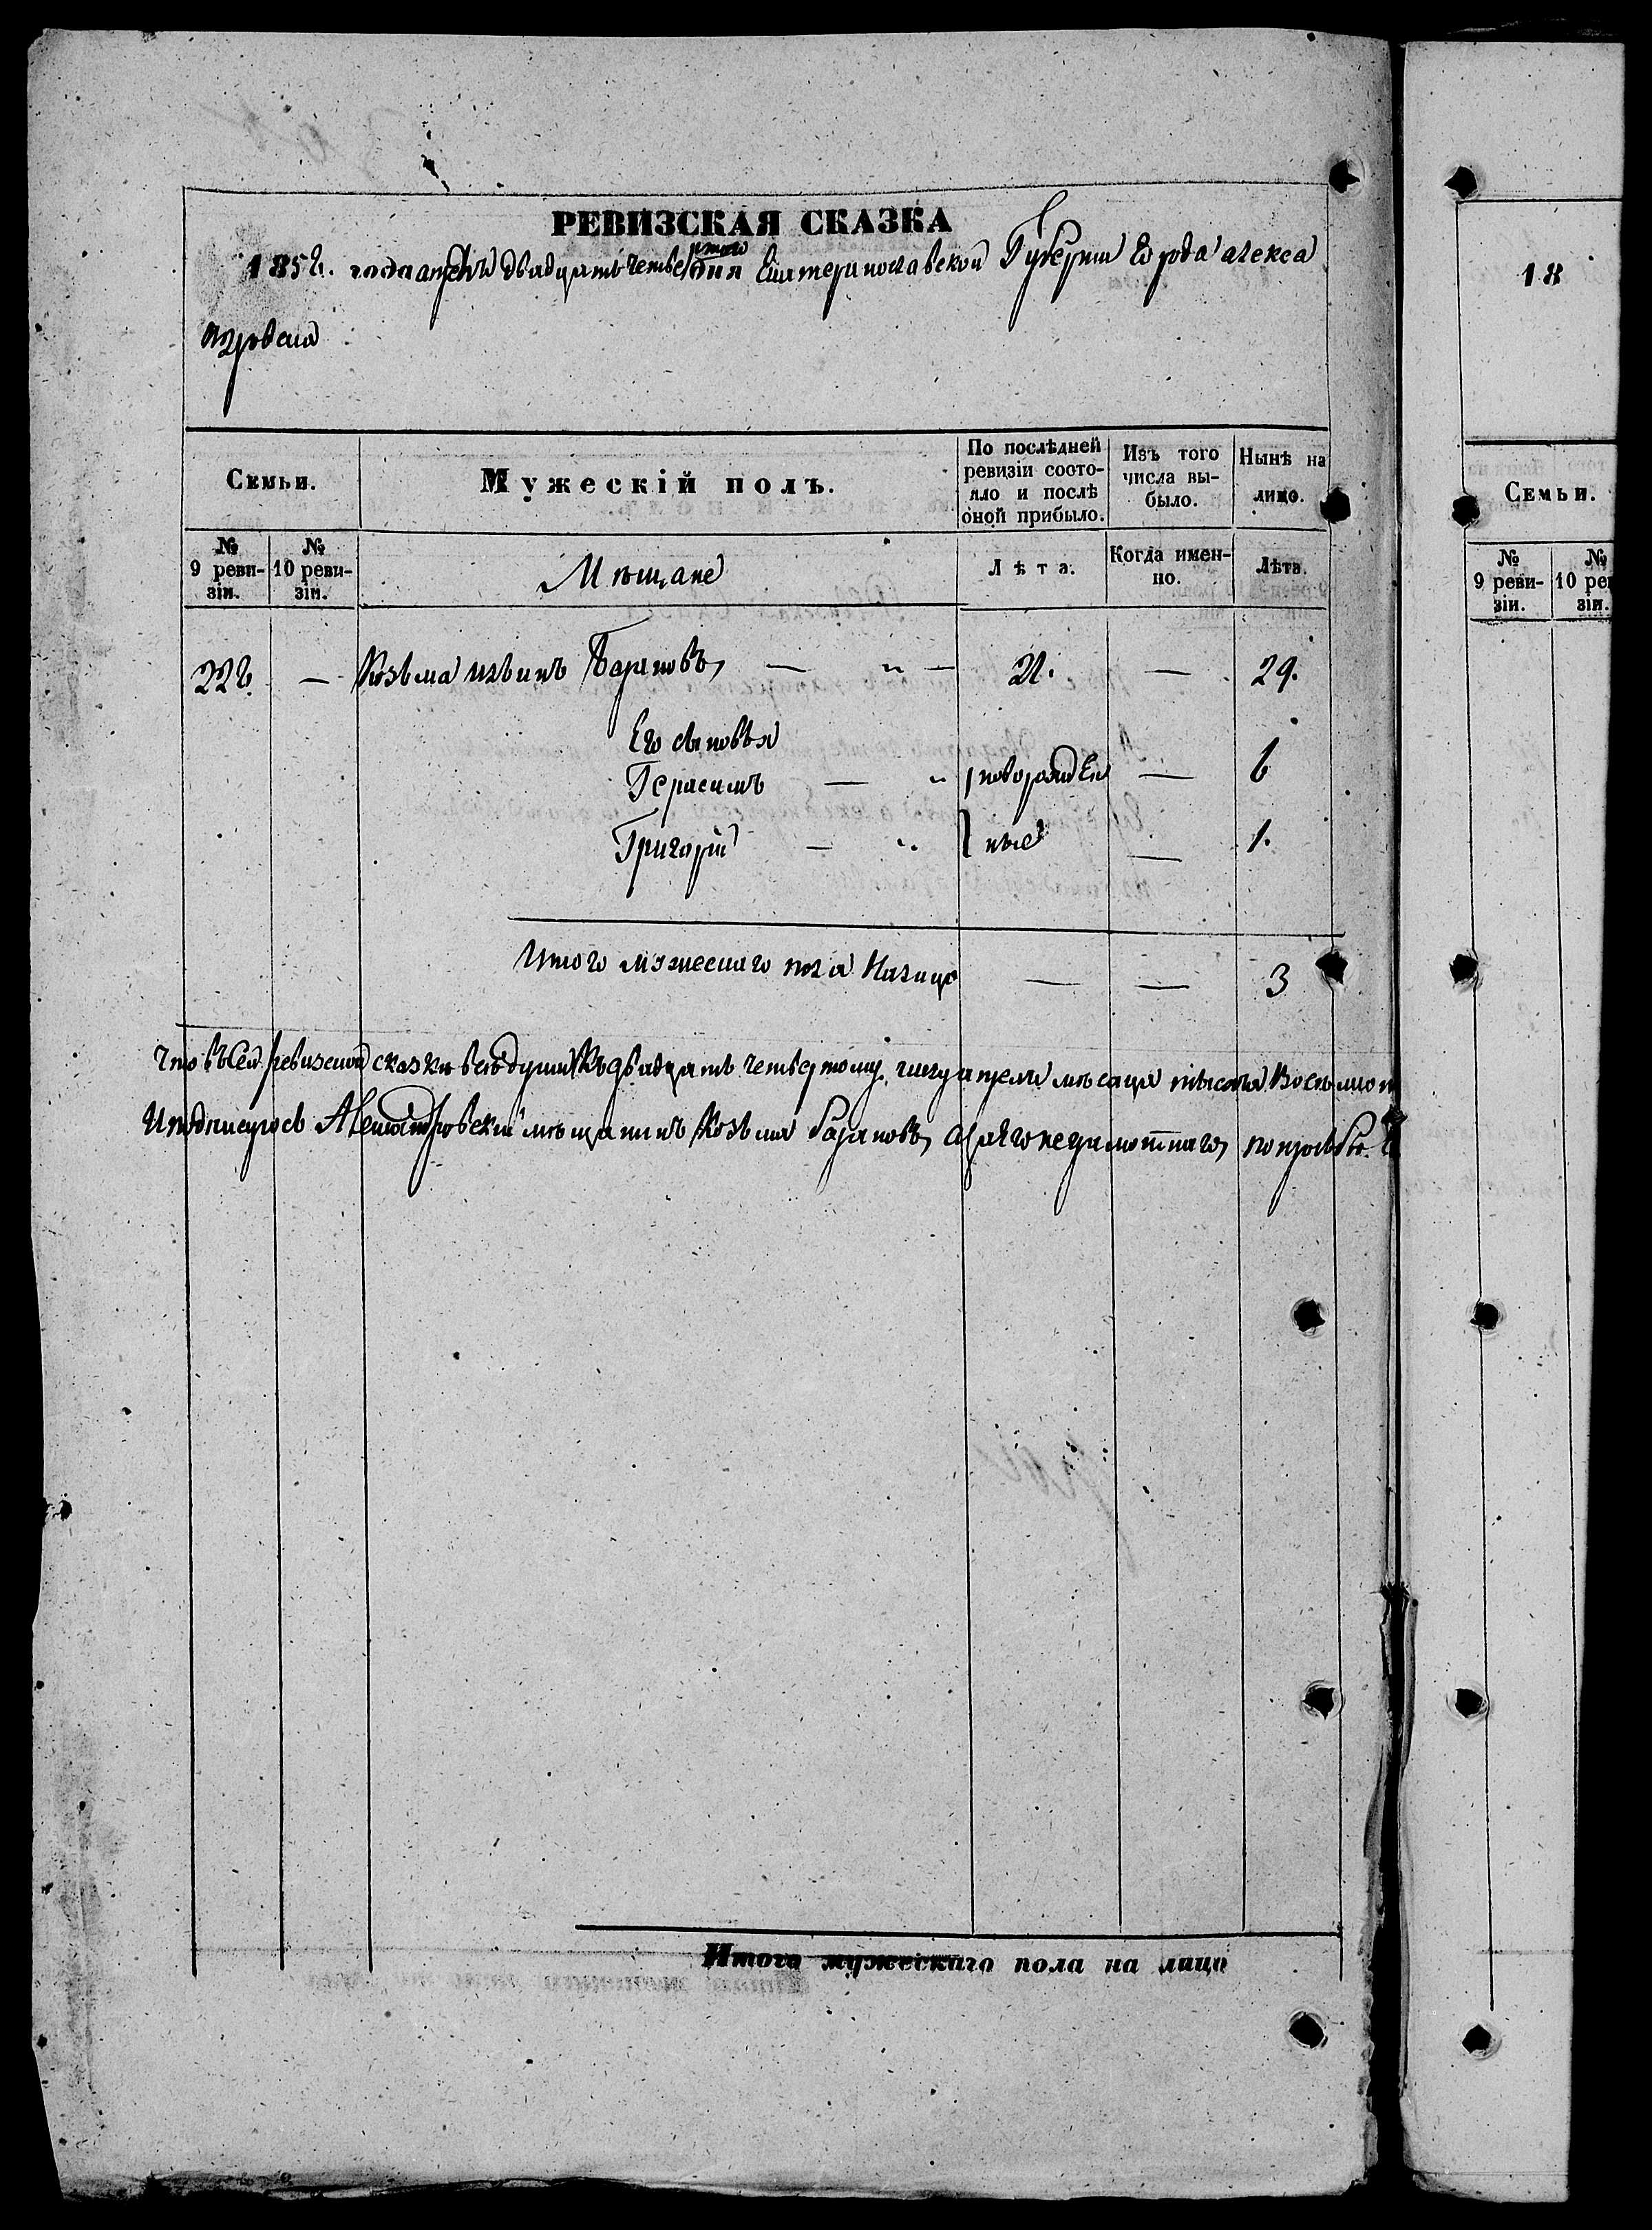 РЕВИЗСКАЯ СКАЗКА
1858. года апреля двадцать четвертого дня Екатеринославской Губернии Города алекса
ндровска
Семьи.
Мужескій полъ.
По послѣдней ревизіи состояло и послѣ оной прибыло.
Изъ того числа выбыло.
Нынѣ на лицо.
№ 9 ревизіи.
№ 10 ревизіи.
Мѣщане
Лѣта.
Когда именно.
Лѣта.
228. — Козьма Барановъ, — " — 21. — 29.
Его сыновья
Герасимъ — " новорожден — 6
Григорій — " ные — 1.
Итого мужескаго пола налицо — — 3
Что въ сей ревизской сказки все души къ двадцать четвертому числу апреля месяца тысяча
И подписуюсь Александровский мещанинъ Козьма Барановъ, а за его неграмотнаго, по прозбе
Итого мужескаго пола на лицо
18
Семьи.
№ 9 ревизіи.
№ 10 реви
зіи.